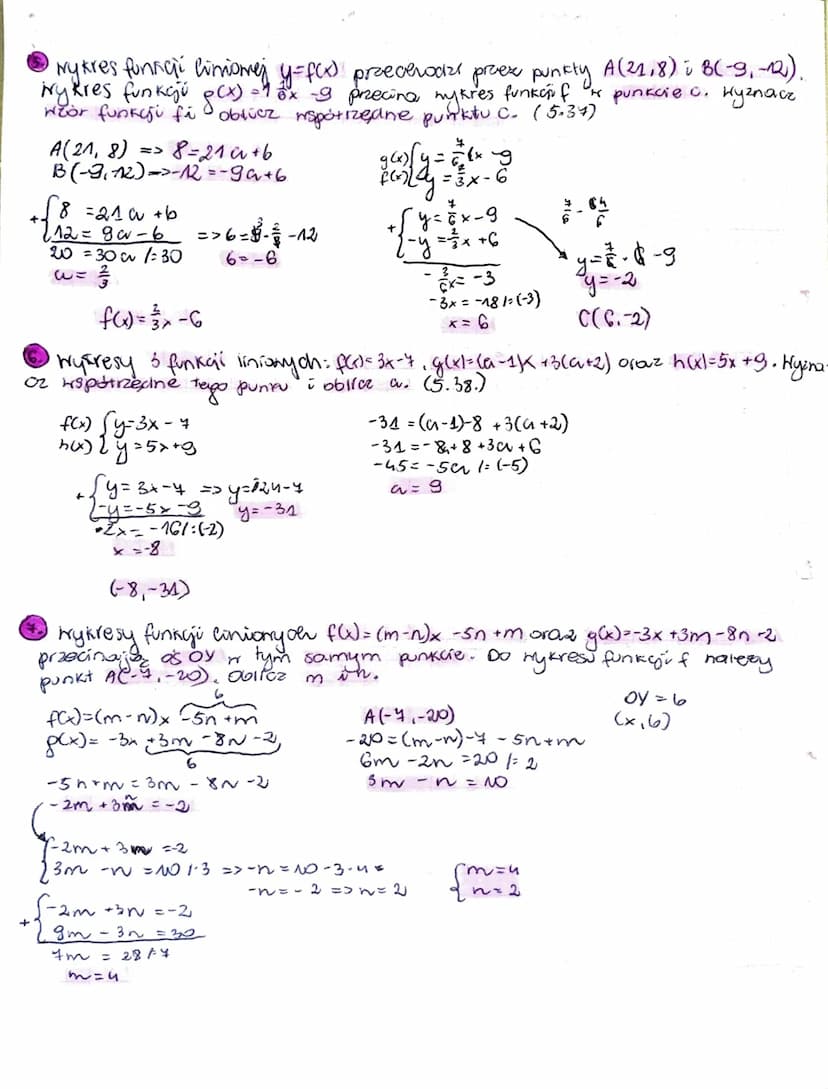 5. Wykres funkcji liniowej y=f(x) przechodzi przez punkty A(21,8) i B(-9,-12).
Wykres funkcji g(x)=1 1/6x -9 przecina wykres funkcji f w punkcie C. Wyznacz
wzór funkcji f i oblicz współrzędne punktu C. (5.37)
A(21, 8) => 8=21a+b
B(-9,-12)=>-12=-9a+b
+{8 =21a+b
12= 9a-b
20 =30a /:30
a= 2/3
=>6=9·2/3-12
b=-6
f(x)=2/3x -6
g(x){y=7/6x -9
f(x){y=2/3x-6
+{y=7/6x-9
-y=2/3x+6
-3/6x=-3
-3x=-18/:(-3)
x=6
y=7/6·6-9
y=-2
C(6,-2)
6. Wykresy 3 funkcji liniowych: f(x)=3x-7, g(x)=(a-1)x+3(a+2) oraz h(x)=5x+9. Wyzna-
cz współrzędne tego punktu i oblicz a. (5.38.)
f(x) {y=3x-7
h(x) {y=5x+9
+{y=3x-7 =>y=-24-7
-y=-5x-9 y=-31
-2x= -16/:(-2)
x=-8
(-8,-31)
-31=(a-1)-8 +3(a+2)
-31=-8a+8+3a+6
-45=-5a /:(-5)
a=9
7. Wykresy funkcji liniowych f(x)=(m-n)x -5n+m oraz g(x)=-3x+3m-8n-2
przecinają oś OY w tym samym punkcie. Do wykresu funkcji f należy
punkt A(-7,-20). Oblicz m i n.
b
f(x)=(m-n)x -5n+m
g(x)= -3x +3m -8n-2
b
-5n+m=3m-8n-2
-2m+3n=-2
A(-7,-20)
-20=(m-n)-7 -5n+m
6m -2n=20 /:2
3m -n =10
OY=b
(x,b)
{-2m+3n=-2
3m -n=10 /·3 =>-n=10-3·4=
-n=-2 =>n=2
{m=4
n=2
+{-2m+3n=-2
9m-3n=30
7m = 28/:7
m=4